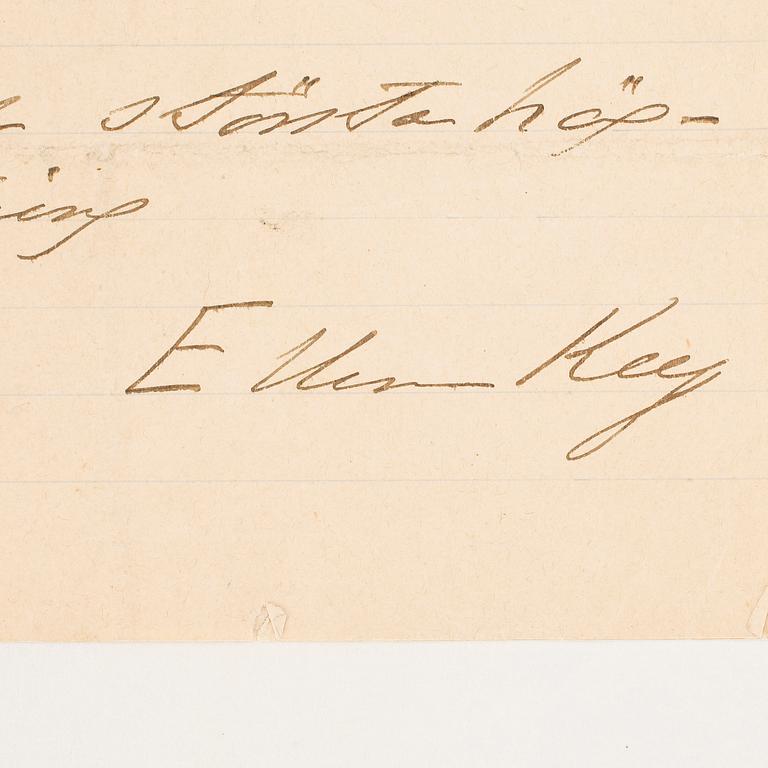 största hög-
ning
Ellen Key